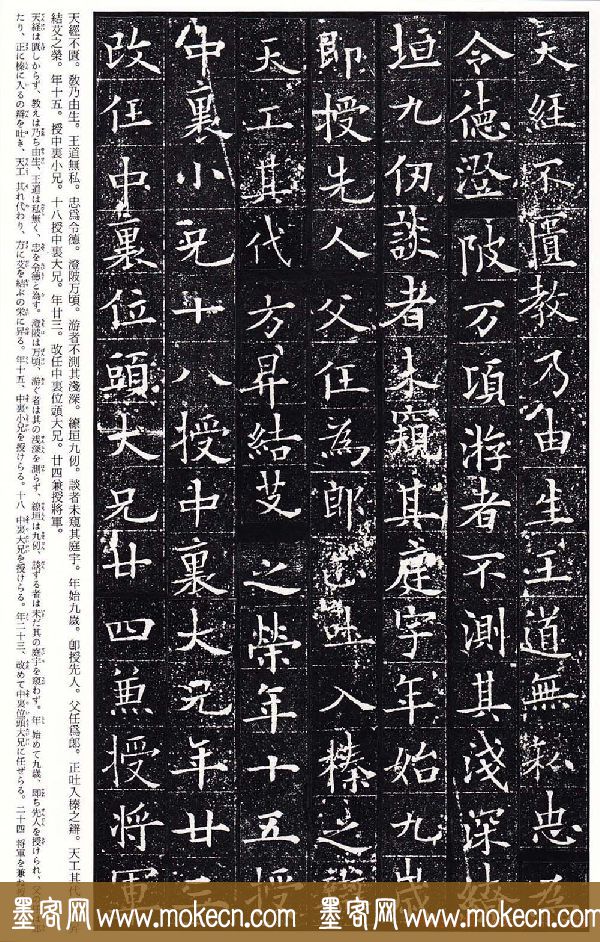 天經不匱教乃由生王道無私忠為
令德澄陂万頃游者不測其淺深
垣九仞談者未窺其庭宇年始九歲
即授先人父任為郎正吐入榛之辯
天工其代方昇結艾之榮年十五授
中裏小兄十八授中裏大兄年廿三
改任中裏位頭大兄廿四兼授将軍
天經不匱。敎乃由生。王道無私。忠爲令德。澄陂万頃。游者不測其淺深。繚垣九仞。談者未窺其庭宇。年始九歲。卽授先人。父任爲郎。正吐入榛之辯。天工其代
結艾之榮。年十五。授中裏小兄。十八授中裏大兄。年廿三。改任中裏位頭大兄。廿四兼授將軍。
天経は匱しからず、教えは乃ち由生、王道は私無く、忠を令徳と為す。澄陂は万頃、游ぐ者は其の浅深を測らず、繚垣は九仞、談する者は未だ其の庭宇を窺わず。年 始めて九歳、即ち先人を授けられ、父
たり、正に榛に入るの辯を吐き、天工 其れ代わり、方に艾を結ぶの栄に昇る。年十五、中裏小兄を授けらる。十八 中裏大兄を授けらる。年二十三、改めて中裏位頭大兄に任ぜらる。二十四 将軍を兼
墨客网 www.mokecn.com 墨客网 www.mokecn.com